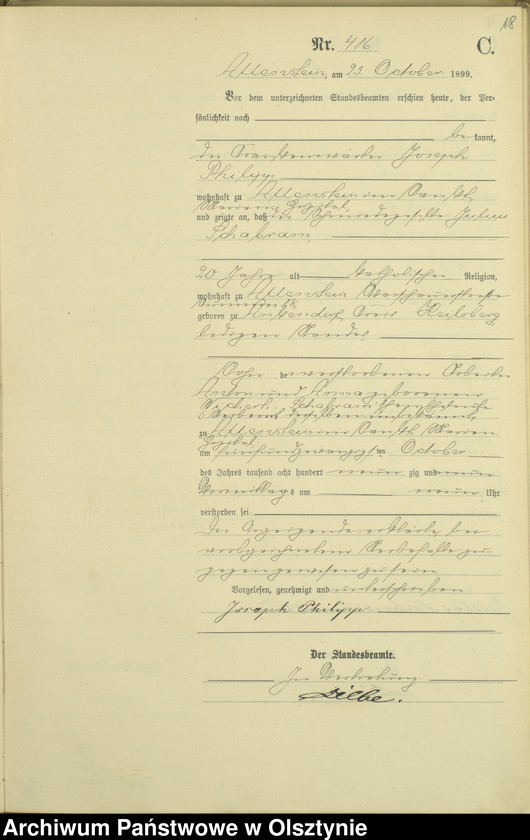 18
Nr. 416 C.
Allenstein, am 23 October 1899.
Vor dem unterzeichneten Standesbeamten erschien heute, der Per-
sönlichkeit nach
be kannt,
der Krankenwärter Joseph
Philipp
wohnhaft zu Allenstein im Sankt
Marien Hospital
und zeigte an, daß der Schmiedegeselle Julius
Schabram
20 Jahre alt katholischer Religion,
wohnhaft zu Allenstein Warschauerstraße
geboren zu Kreis Heilsberg
ledigen Standes
Sohn der verstorbenen
Anton und Anna geborenen
Schabram
zu Allenstein im Sankt Marien
Hospital
am October
des Jahres tausend acht hundert neun zig und neun
Vormittags um neun Uhr
verstorben sei
Der Anzeigende erklärte, bei
vorbezeichnetem Sterbefalle zu-
gegen gewesen zu sein
Vorgelesen, genehmigt und unterschrieben
Joseph Philipp
Der Standesbeamte.
In Vertretung
Dilbe.
Archiwum Państwowe w Olsztynie